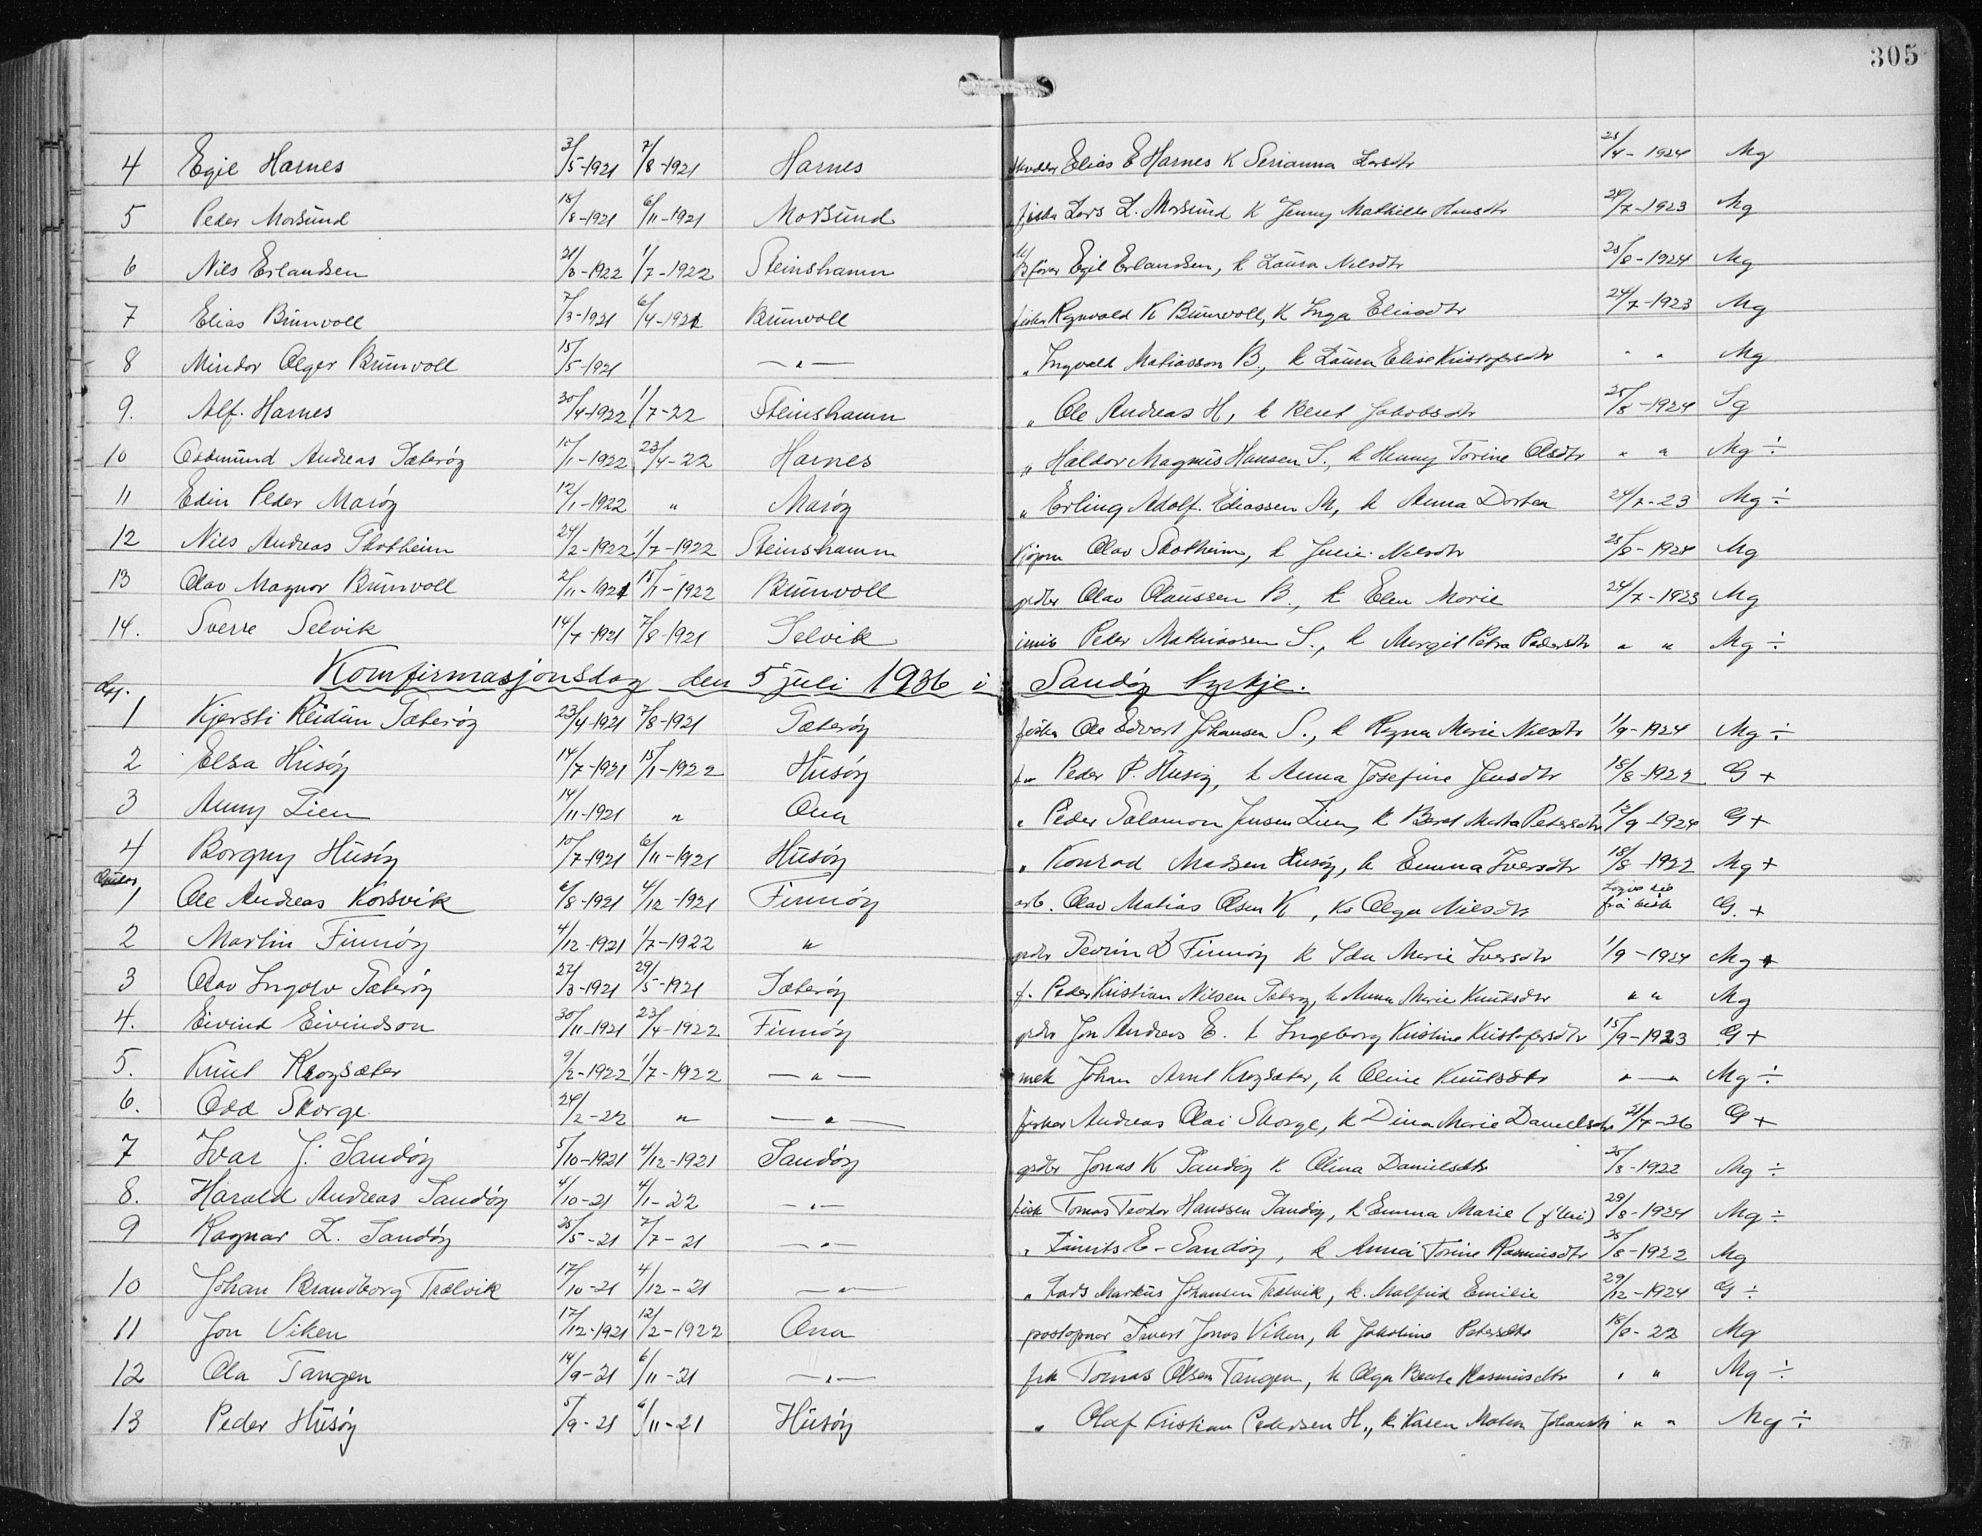 305
4 Egil Harnes 3/5-1921 7/8-1921 Harnes Elias E Harnes k Serianna Larsdtr 25/4-1924 Mg
5 Peder Morsund 18/8-1921 6/11-1921 Morsund fisker Lars L. Morsund k Jenny Mathilde Hansdtr 24/7-1923 Mg
6 Nils Erlandsen 21/3-1922 1/7-1922 Steinshamn Egil Erlandsen, k Laura Nilsdtr 25/8-1924 Mg
7 Elias Brunvoll 7/3-1921 6/4-1921 Brunvoll fisker Ragnvald K Brunvoll, k Inga Eliasdtr 24/7-1923 Mg
8 Mindor Olger Brunvoll 15/5-1921 — " — " Ingvald Matiasson B., k Laura Elise Kristofersdtr " " Mg
9. Alf. Harnes 30/4-1922 1/7-22 Steinshamn " Ole Andreas H, k Beret Jakobsdtr 25/8-1924 Sg
10 Oddmund Andreas Sæterøy 15/1-1922 23/4-22 Harnes " Haldor Magnus Hansen S., k Henny Torine Olsdtr " " Mg ÷
11 Edin Peder Marøy 12/1-1922 " Marøy " Erling Adolf. Eliassen M, k Anna Dortea 24/7-23 Mg ÷
12 Nils Andreas Skotheim 24/2-1922 1/7-1922 Steinshamn Kjøpm Olav Skotheim, k Julie Nilsdtr 25/8-1924 Mg
13 Olav Magnor Brunvoll 2/11-1921 15/1-1922 Brunvoll grdbr Olav Olaussen B., k Elen Marie 24/7-1923 Mg
14. Sverre Selvik 14/7-1921 7/8-1921 Selvik Peder Mathiassen S., k Margit Petra Pedersdtr " " Mg ÷
Komfirmasjonsdag den 5 juli 1936 i Sandøy kyrkje.
1 Kjersti Reidun Sæterøy 23/4-1921 7/8-1921 Sæterøy fisker Ole Edvart Johansen S., k Ragna Marie Nilsdtr 1/9-1924 Mg ÷
2 Elsa Husøy 14/7-1921 15/1-1922 Husøy Peder P. Husøy, k Anna Josefine Jensdtr 18/8-1922 G +
3 Anny Lien 14/11-1921 " Ona " Peder Salamon Jensen Lien, k Beret Marta Pedersdtr 12/9-1924 G +
4 Borgny Husøy 10/7-1921 6/11-1921 Husøy " Konrad Madsen Husøy, k Emma Iversdtr 18/8-1922 Mg +
Gutar
1 Ole Andreas Korsvik 6/8-1921 4/12-1921 Finnøy arb. Olav Matias Olsen K, k Olga Nilsdtr frå bisk G. +
2 Martin Finnøy 4/12-1921 1/7-1922 " grdbr Severin D Finnøy k Ida Marie Iversdtr 1/9-1924 Mg +
3 Olav Ingolv Sæterøy 27/3-1921 29/5-1921 Sæterøy f. Peder Kristian Nilsen Sæterøy, k Anna Marie Knutsdtr " " Mg
4. Eivind Eivindson 30/11-1921 23/4-1922 Finnøy grdbr Jon Andreas E. k Ingeborg Kristine Kristofersdtr 15/9-1923 G +
5. Knut Krogsæter 9/2-1922 1/7-1922 — " — mek Johan Arnt Krogsæter, k Oline Knutsdtr " — " Mg ÷
6. Odd Skorge 24/2-22 " — " — fisker Andreas Olai Skorge, k Dina Marie Danielsdtr 21/7-26 G +
7 Ivar J. Sandøy 5/10-1921 4/12-1921 Sandøy grdbr Jonas K Sandøy k Olina Danielsdtr 25/8-1922 Mg ÷
8. Harald Andreas Sandøy 4/10-21 4/1-22 — " — fisk Tomas Teodor Hanssen Sandøy, k Emma Marie 29/8-1924 Mg ÷
9 Ragnar L. Sandøy 25/5-21 7/7-21 — " — " Laurits E. Sandøy, k Anna Torine Rasmusdtr 25/8-1922 Mg
10 Johan Brandborg Trælvik 17/10-21 4/12-21 — " — " Lars Markus Johansen Trælvik, k. Malfrid Emilie 29/12-1924 G ÷
11 Jon Viken 17/12-1921 12/2-1922 Ona postopnar Sivert Jonas Viken, k Jakobine Pedersdtr 18/8-22 Mg
12 Ola Tangen 14/9-21 6/11-21 — " — fisk Tomas Olsen Tangen, k Olga Beate Rasmusdtr " " Mg ÷
13 Peder Husøy 5/9-21 6/11-21 Husøy " Olaf Kristian Pedersen H., k. Karen " " Mg ÷